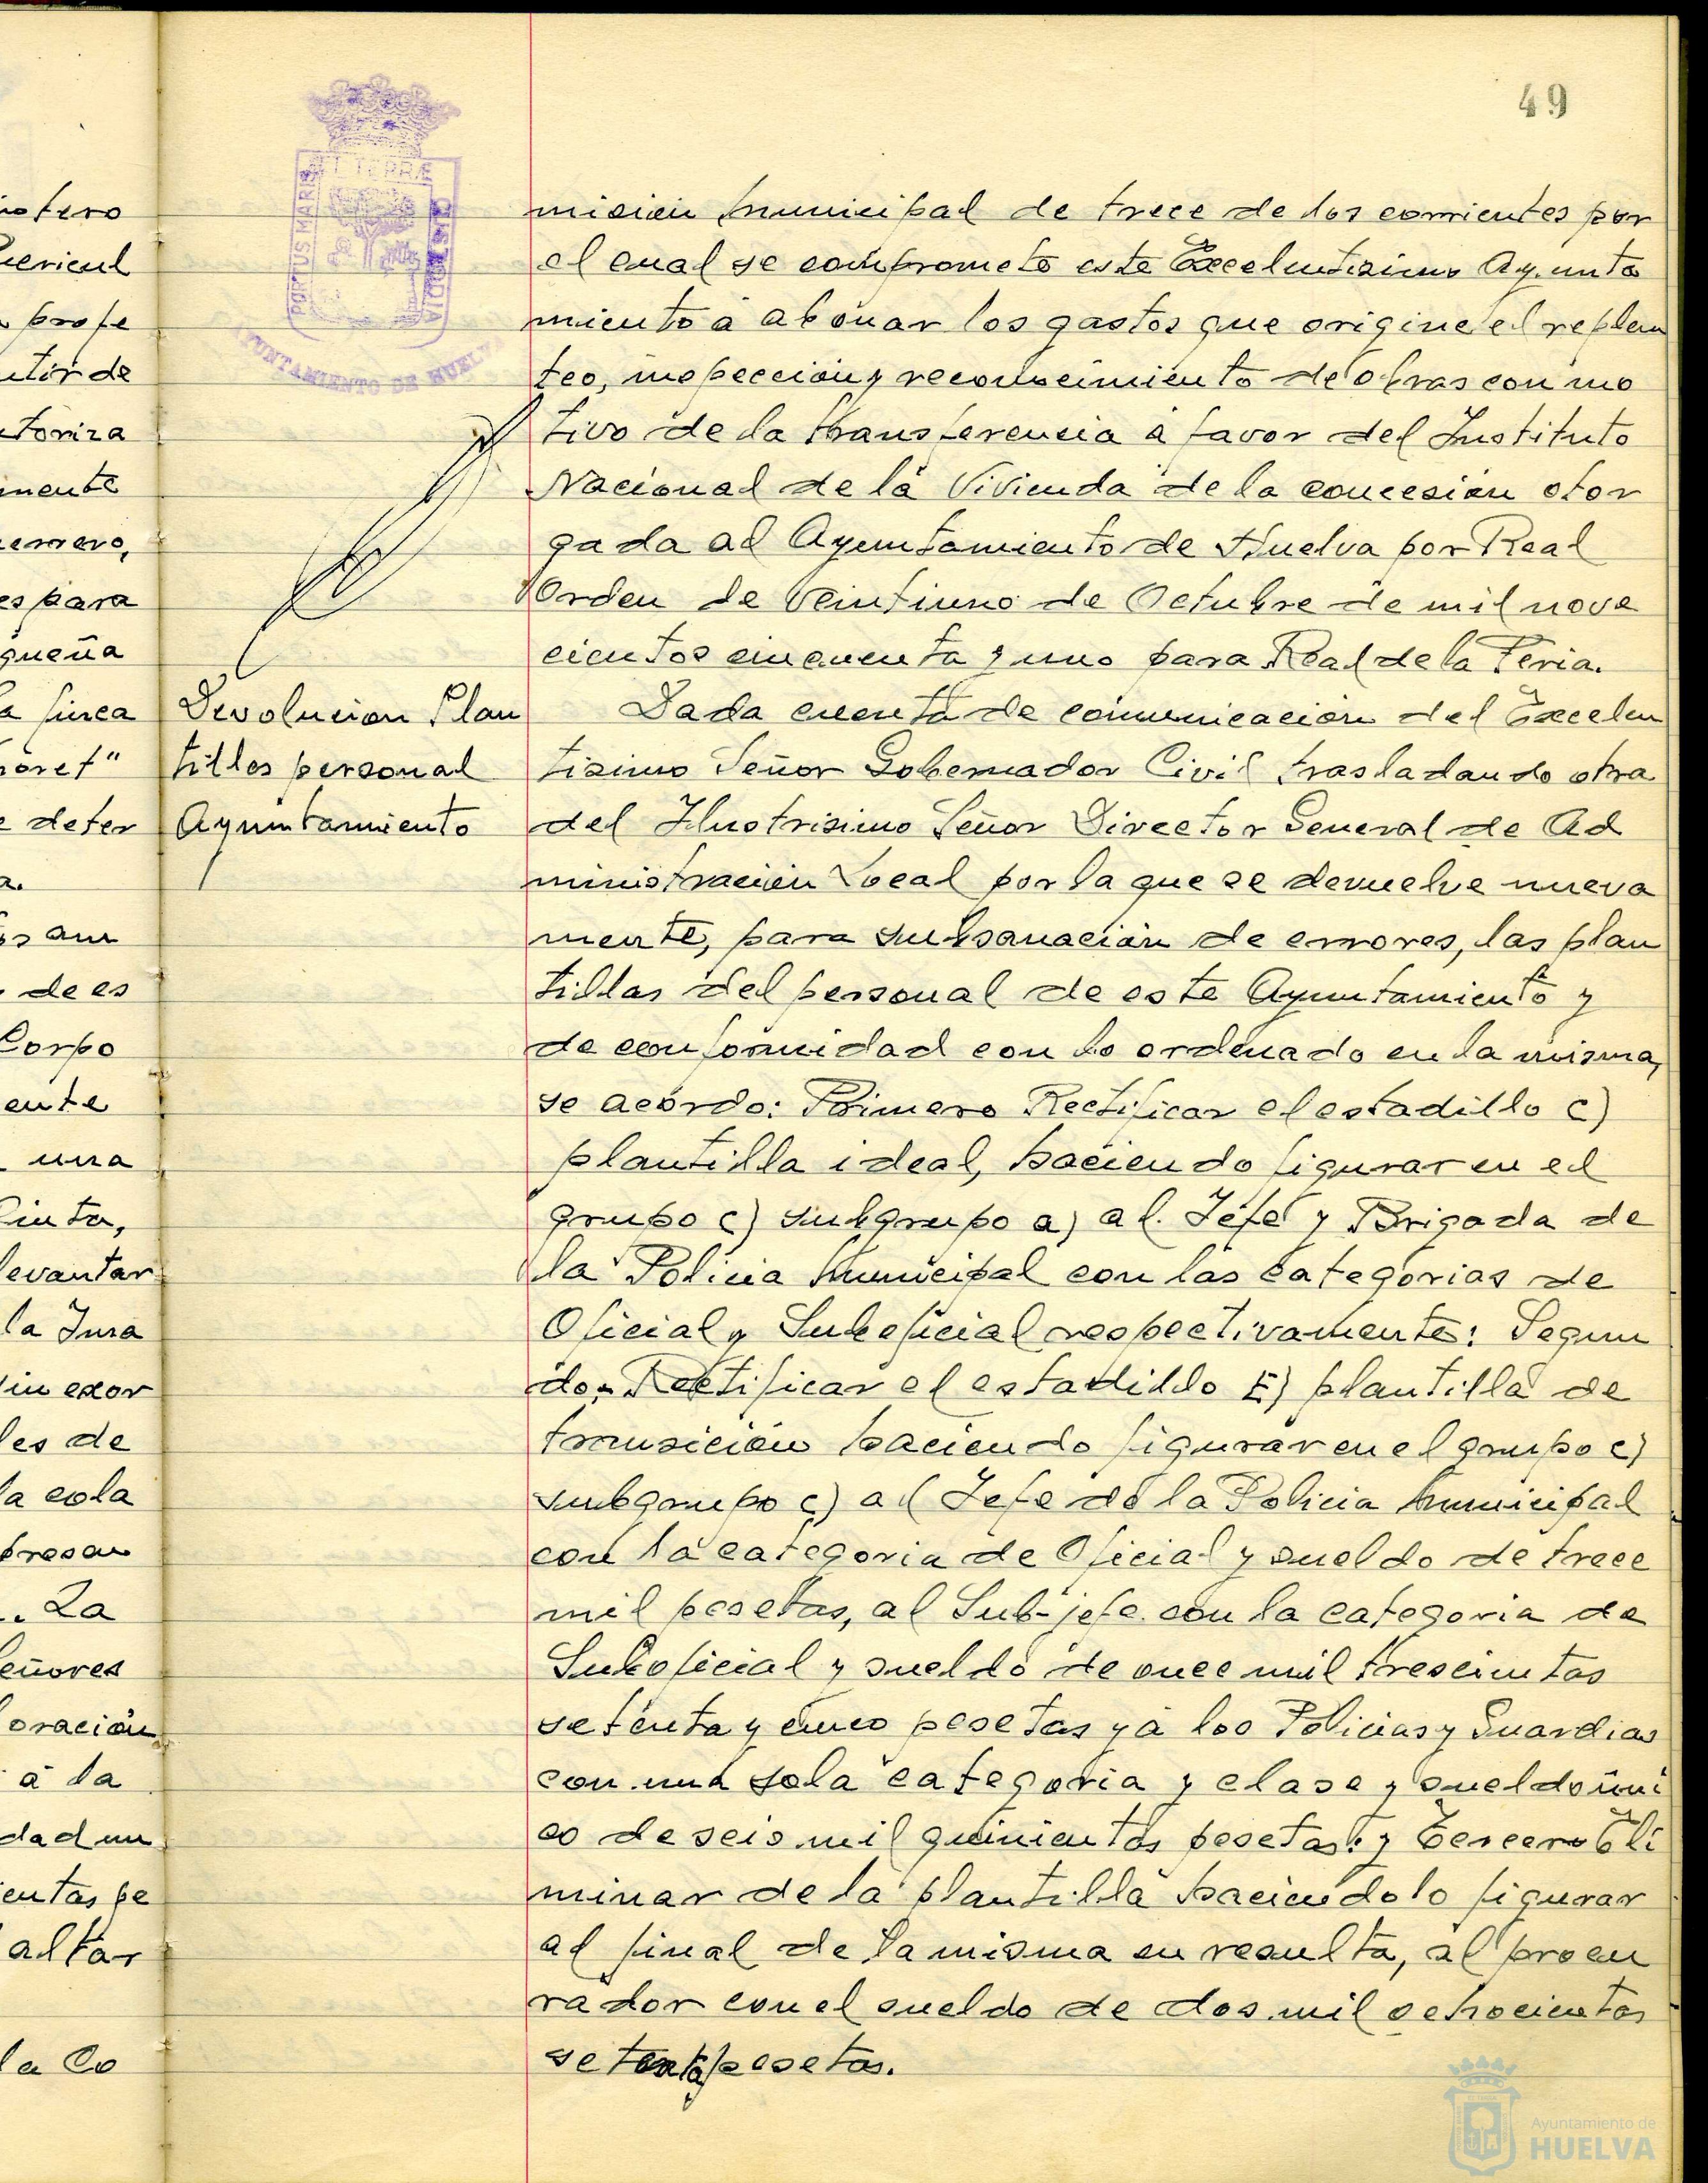 49
PORTUS MARIS ET TERRÆ CUSTODIA
AYUNTAMIENTO DE HUELVA
mision municipal de trece de los corrientes por
el cual se compromete este Excelentisimo Ayunta
miento á abonar los gastos que origine el replan
teo, inspeccion y reconocimiento de obras con mo
tivo de la transferencia á favor del Instituto
Nacional de la Vivienda de la concesión otor
gada al Ayuntamiento de Huelva por Real
Orden de Veintiuno de Octubre de mil nove
cientos cincuenta y uno para Real de la Feria.
Devolucion Plan
tillas personal
Ayuntamiento
Dada cuenta de comunicación del Excelen
tisimo Señor Gobernador Civil trasladando otra
del Ilustrisimo Señor Director General de Ad
ministración Local por la que se devuelve nueva
mente, para subsanación de errores, las plan
tillas del personal de este Ayuntamiento y
de conformidad con lo ordenado en la misma,
se acordo: Primero Rectificar el estadillo C)
plantilla ideal, haciendo figurar en el
grupo c) subgrupo a) al Jefe y Brigada de
la Policia municipal con las categorias de
Oficial y Suboficial respectivamente: Segun
do.- Rectificar el estadillo E) plantilla de
transición haciendo figurar en el grupo c)
subgrupo c) al Jefe de la Policia municipal
con la categoria de Oficial y sueldo de trece
mil pesetas, al Sub-jefe con la categoria de
Suboficial y sueldo de once mil trescientas
setenta y cinco pesetas y á los Policias y Guardias
con una sola categoria y clase y sueldo úni
co de seis mil quinientas pesetas: y Tercero Eli
minar de la plantilla haciendolo figurar
al final de la misma en resulta, al procu
rador con el sueldo de dos mil ochocientas
setenta pesetas.
otero
ericul
profe
utor de
toriza
mente
errero,
es para
queña
a finca
oret"
e deter
a.
os aun
de es
Corpo
ente
una
Cinta,
levantar
la Jura
in exor
les de
la cola
presan
. La
eñores
oración
á la
dad un
entas pe
altar
la Co
Ayuntamiento de
HUELVA